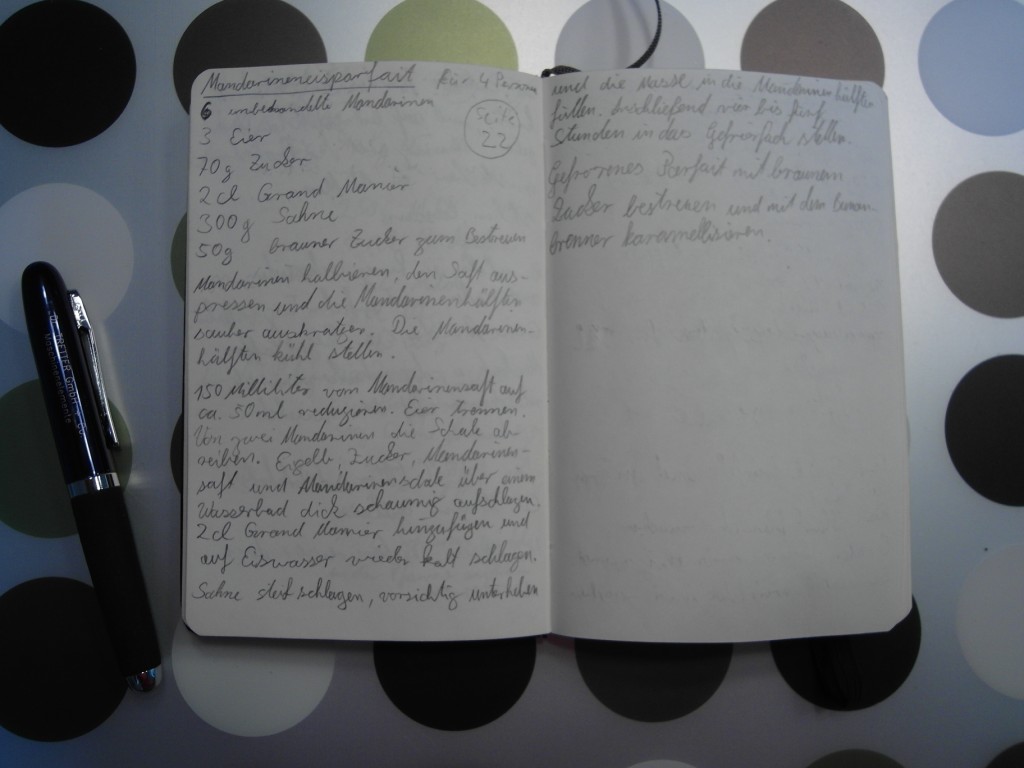 Mandarineneisparfait für 4 Person
6 unbehandelte Mandarinen
Seite
22
3 Eier
70g Zucker
2 cl Grand Manier
300g Sahne
50g brauner Zucker zum Bestreuen
Mandarinen halbieren, den Saft aus-
pressen und die Mandarinenhälften
sauber auskratzen. Die Mandarinen-
hälften kühl stellen.
150 Milliliter vom Mandarinensaft auf
ca. 50ml reduzieren. Eier trennen.
Von zwei Mandarinen die Schale ab
reiben. Eigelb, Zucker, Mandarinen-
saft und Mandarinenschale über einem
Wasserbad dick schaumig aufschlagen.
2cl Grand Manier hinzufügen und
auf Eiswasser wieder kalt schlagen.
Sahne steif schlagen, vorsichtig unterheben
und die Masse in die Mandarinenhälften
füllen. Anschließend vier bis fünf
Stunden in das Gefrierfach stellen.
Gefrorenes Parfait mit braunem
Zucker bestreuen und mit dem
brenner karamellisieren.